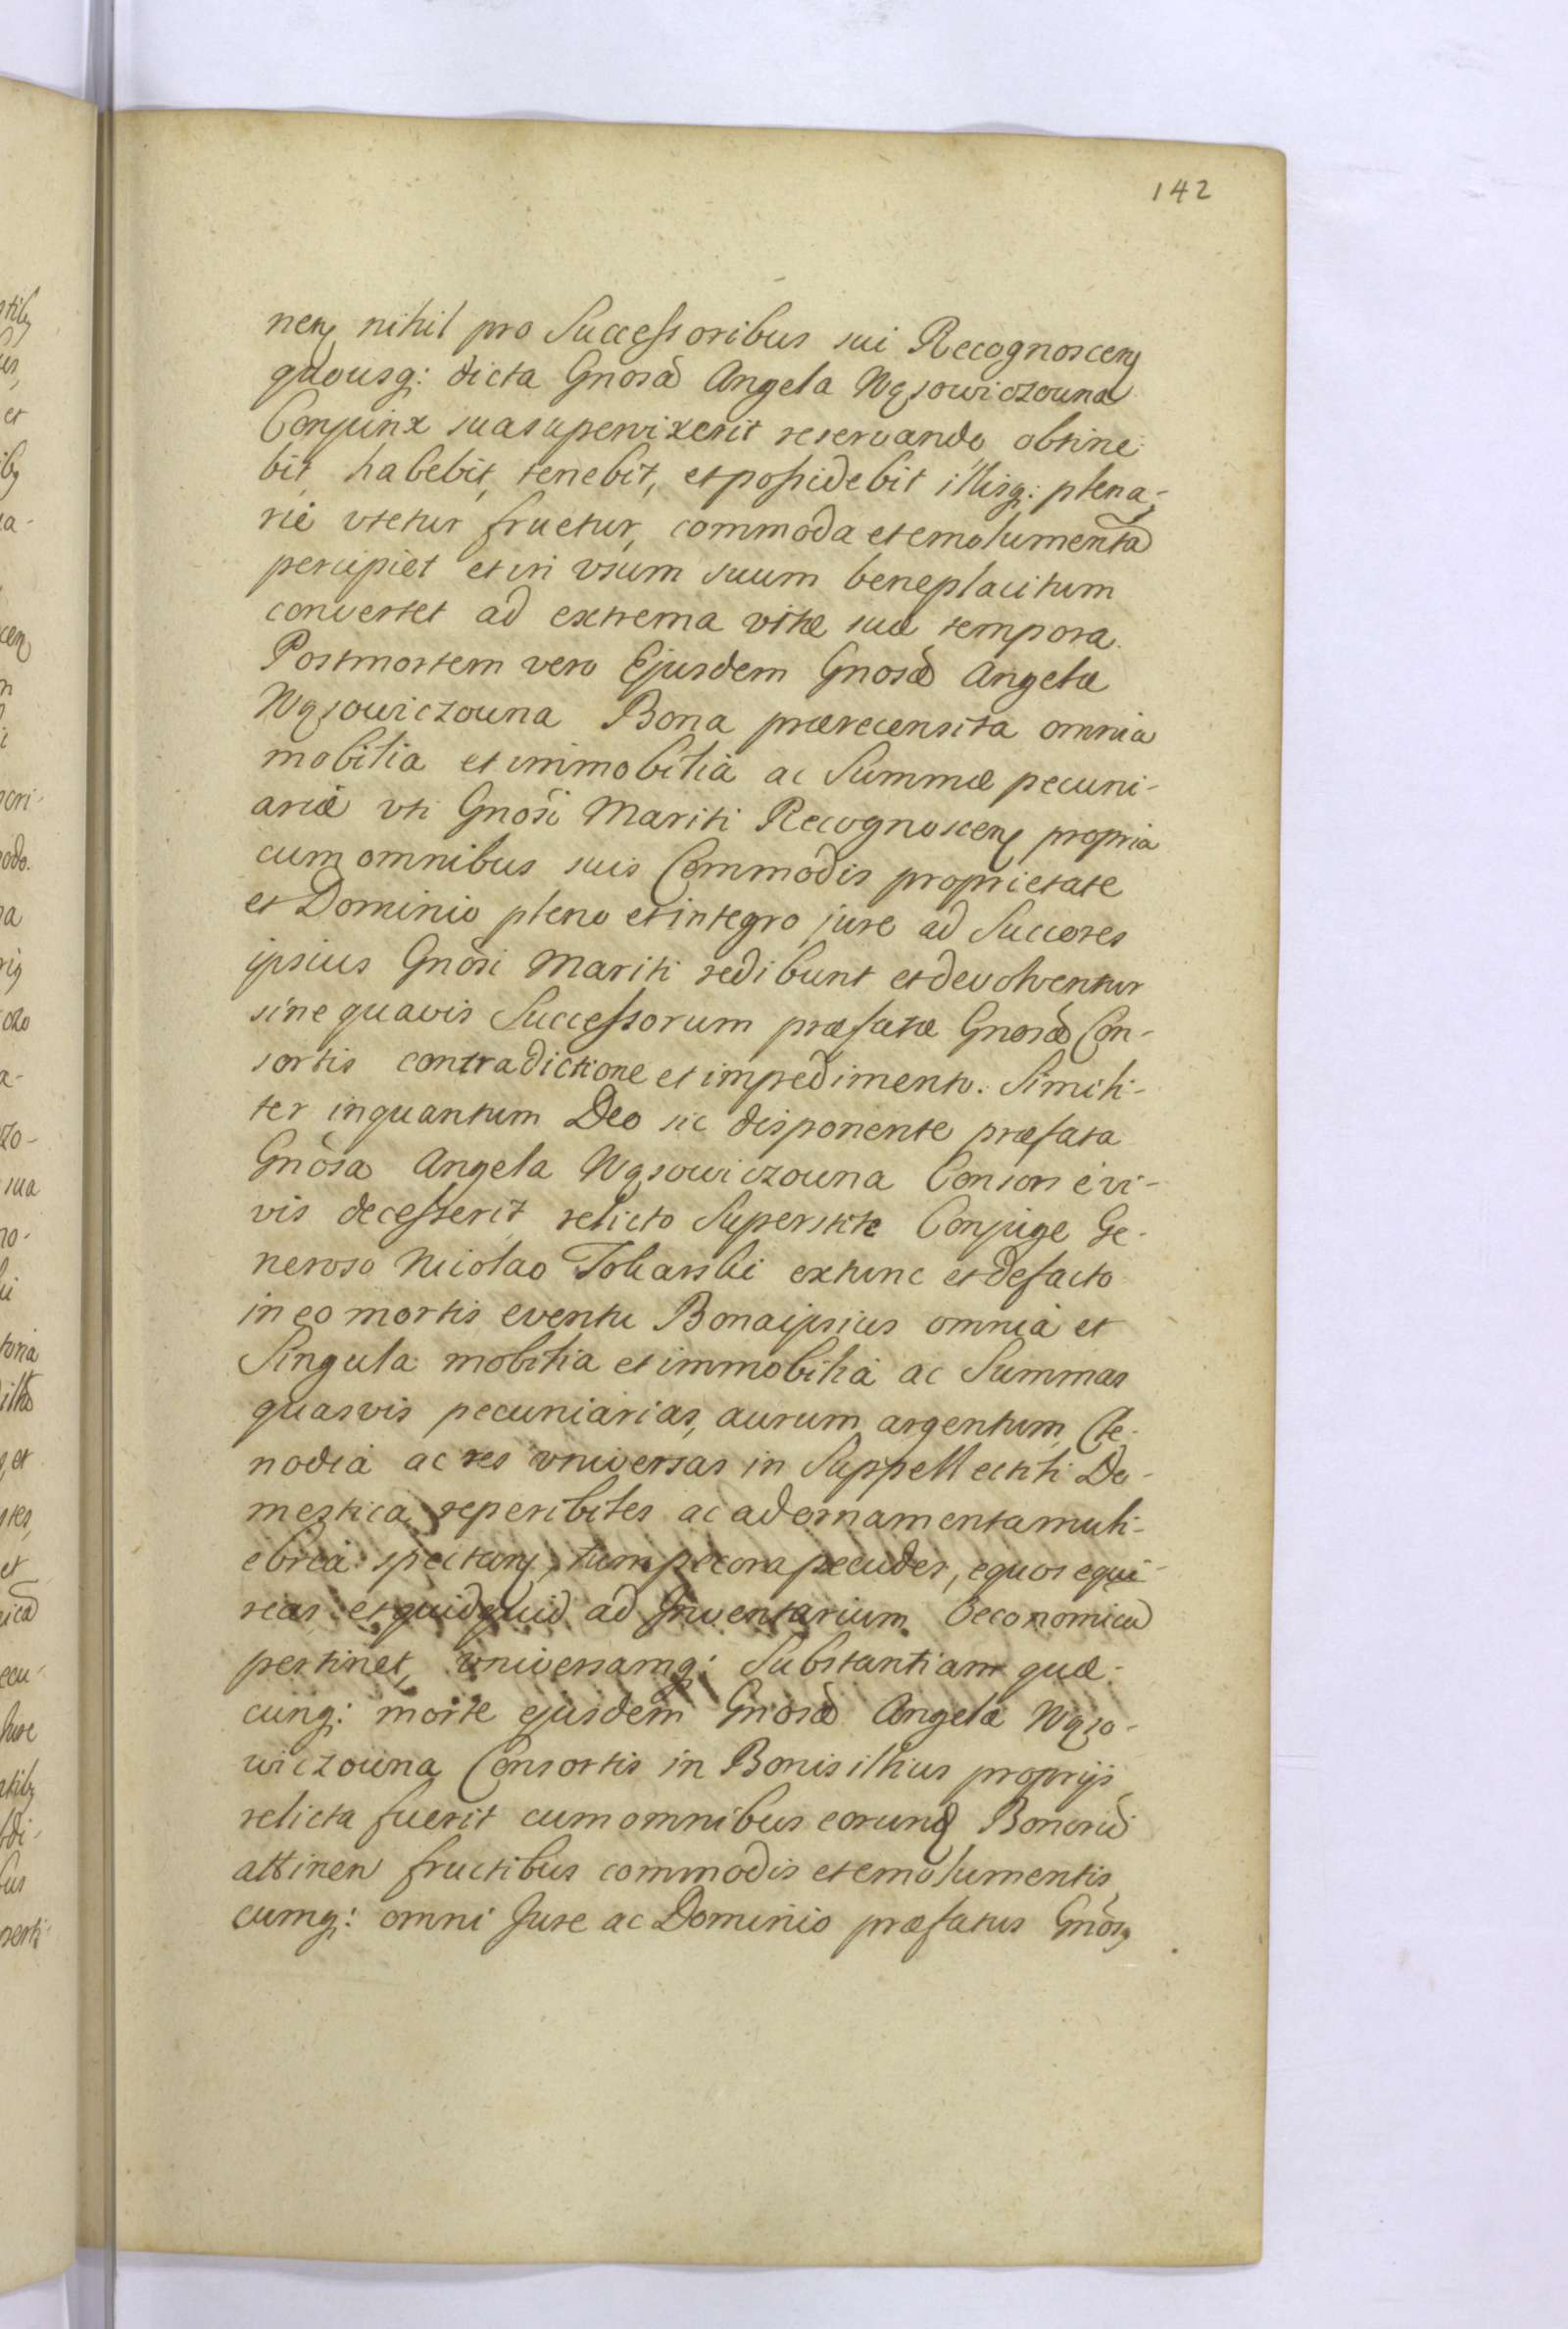 142
nen nihil pro Successoribus sui Recognoscen
quousq: dicta Gnosa Angela Wąsowiczowna
Conjunx sua supervixerit reservando, obtine-
bit, habebit, tenebit, et possidebit illisq: plena-
rie vtetur fruetur, commoda et emolumenta
percipiet et in vsum suum beneplacitum
convertet ad extrema vitæ suæ tempora.
Post mortem vero Ejusdem Gnosæ Angelæ
Wąsowiczowna Bona prærecensita omnia
mobilia et immobilia ac Summæ pecuni-
ariæ vti Gnosi Mariti Recognoscen propria
cum omnibus suis Commodis proprietate
et Dominio pleno et integro jure ad Succores
ipsius Gnosi Mariti redibunt et devolventur
sine quavis Successorum præfatæ Gnosæ Con-
sortis contradictione et impedimento. Simili-
ter inquantum Deo sic disponente præfata
Gnosa Angela Wąsowiczowna Consors e vi-
vis decesserit relicto Superstite Conjuge Ge-
neroso Nicolao Tokarski extunc et defacto
in eo mortis eventu Bona ipsius omnia et
Singula mobilia et immobilia ac Summas
quasvis pecuniarias, aurum argentum, Cle-
nodia ac res vniversas in Suppellectili Do-
mestica reperibiles ac ad ornamenta muli-
ebria spectan, tum pecora pecudes, equos equi-
reas et quidquid ad Inventarium Oeconomicu
pertinet, vniversamq: Substantiam quæ-
cunq: morte ejusdem Gnosæ Angelæ Wąso-
wiczowna Consortis in Bonis illius proprijs
relicta fuerit cum omnibus eorund Bonoru
attinen fructibus commodis et emolumentis
cumq: omni Jure ac Dominio præfatus Gnosq